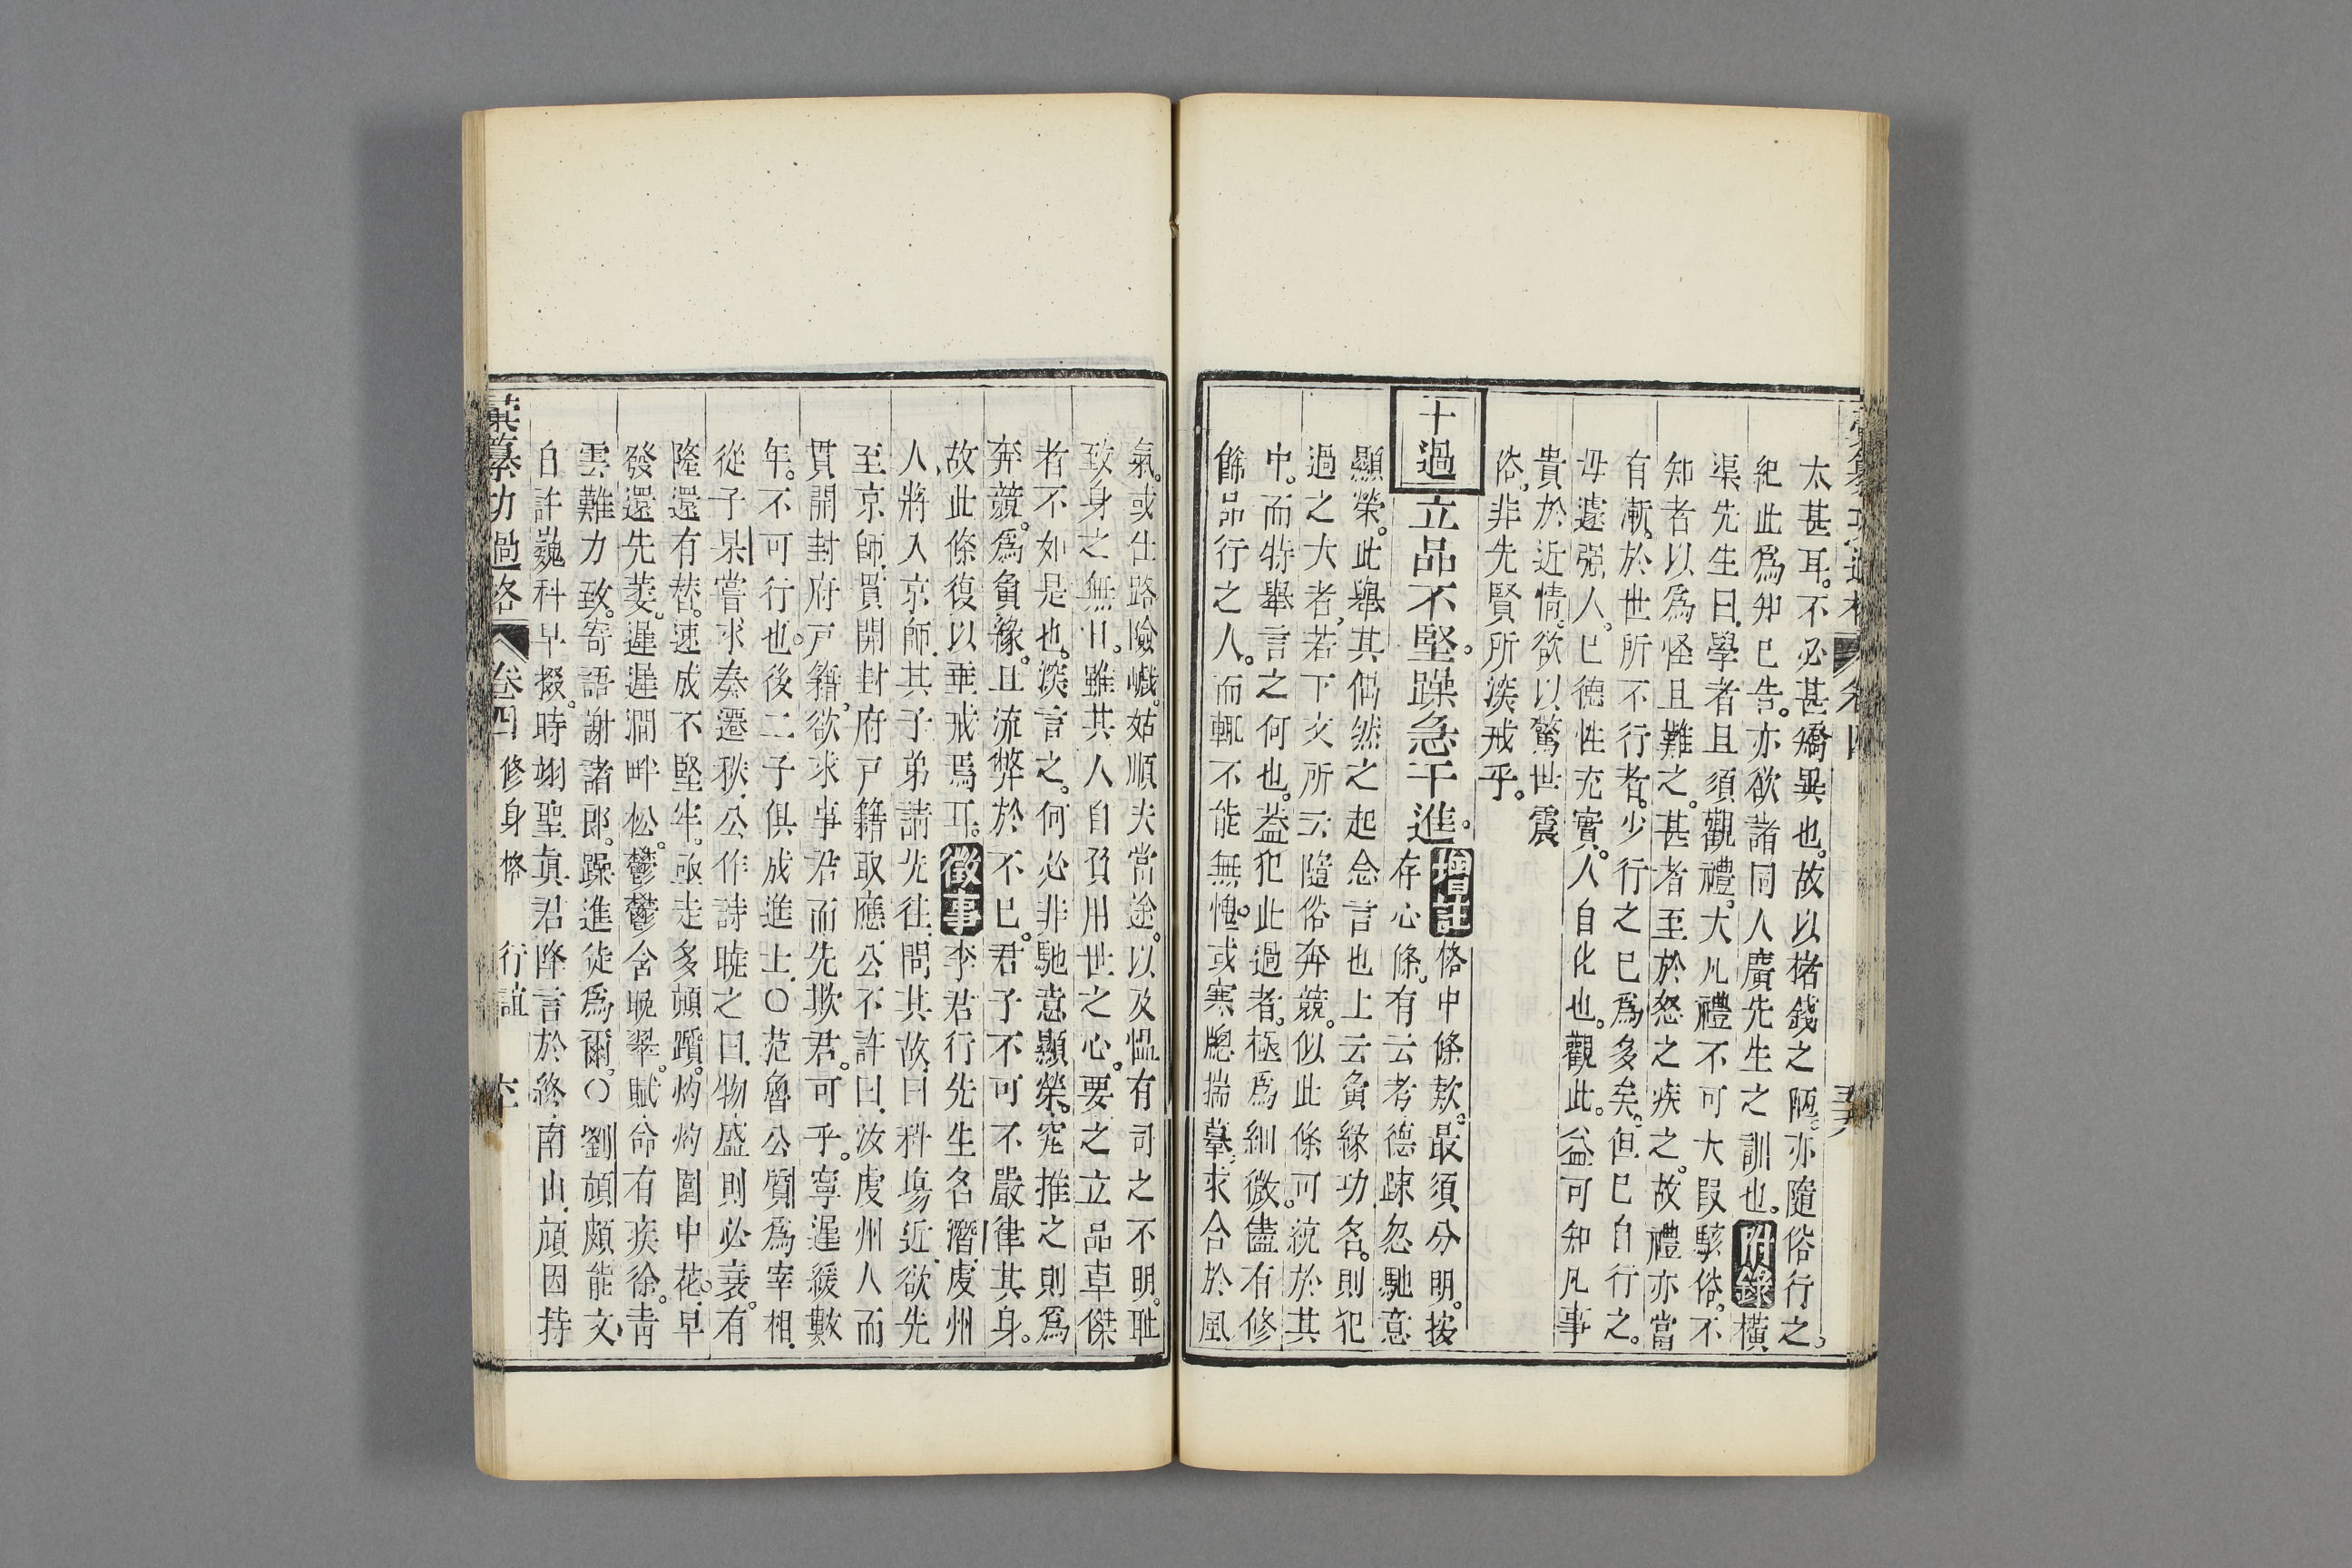 太甚耳。不必甚矯異也。故以楮錢之陋。亦隨俗行之。
紀此爲知已告。亦欲諸同人廣先生之訓也。附錄橫
渠先生曰。學者且須觀禮。大凡禮不可大段駭俗。不
知者以爲怪。且難之。甚者至於怒之疾之。故禮亦當
有漸。於世所不行者。少行之已爲多矣。但巳自行之。
毋遽强人。巳德性充實。人自化也。觀此。益可知凡事
貴於近情。欲以驚世震
俗。非先賢所淡戒乎。
十過立品不堅。躁急干進。增註
格中條款。最須分明。按
存心條。有云考德踈忽馳意
顯榮。此舉其偶然之起念言也上云夤緣功名。則犯
過之大者。若下文所云隨俗奔競。似此條可統於其
中。而特舉言之何也。葢犯此過者。極爲細微。儘有修
餙品行之人。而輒不能無愧。或寒牕揣摹。求合於風
氣。或仕路險巇。姑順夫當途。以及慍有司之不明。耻
致身之無日。雖其人自負用世之心。要之立品卓傑
者不如是也。淡言之。何必非馳意顯榮。究推之則爲
奔競。爲夤緣。且流弊於不已。君子不可不嚴律其身。
故此條復以垂戒焉耳。徵事李君行先生名潛。虔州
人。將入京師。其子弟請先往。問其故。曰科場近。欲先
至京師。買開封府戸籍取應。公不許曰。汝虔州人而
貫開封府戸籍。欲求事君。而先欺君。可乎。寧遲緩數
年。不可行也。後二子俱成進士。○范魯公質爲宰相。
從子杲嘗求奏遷秩。公作詩曉之曰。物盛則必衰。有
隆還有替。速成不堅牢。亟走多顛躓。灼灼園中花。早
發還先萎。遲遲澗畔松。鬱鬱含晚翠。賦命有疾徐。青
雲難力致。寄語謝諸郎。躁進徒爲爾。○劉頑頗能文。
自許巍科早掇。時翊聖眞君降言於終南山。頑因持
彙纂功過格 卷四 修身格 行誼